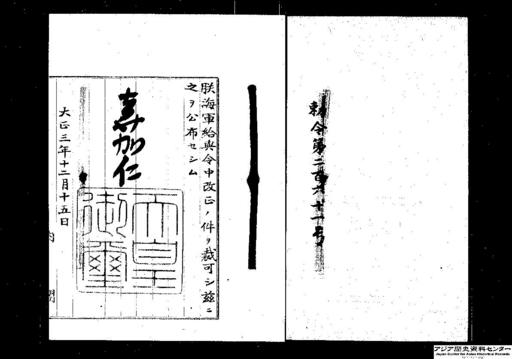 勅令第二百六十一号
朕海軍給與令中改正ノ件ヲ裁可シ茲ニ
之ヲ公布セシム
嘉仁
天皇御璽
大正三年十二月十五日
内閣
アジア歴史資料センター
Japan Center for Asian Historical Records